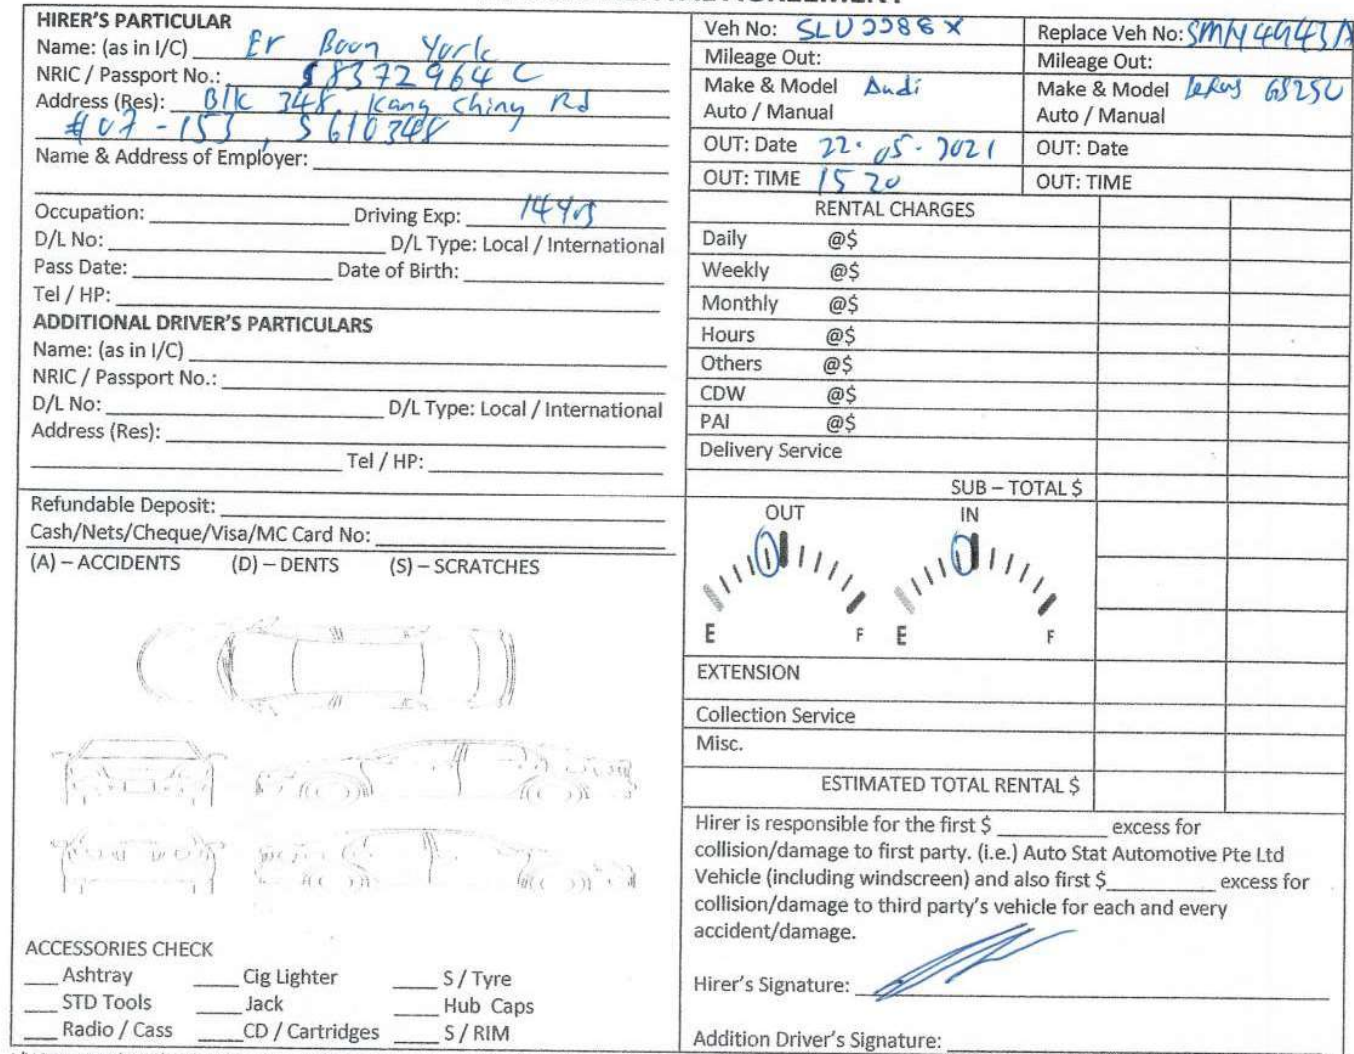 HIRER'S PARTICULAR
Name: (as in I/C) Er Boon York
NRIC / Passport No.: S8372964C
Address (Res): Blk 348, Kang Ching Rd
#07-153, S 610348
Name & Address of Employer:
Occupation: Driving Exp: 14 Yrs
D/L No: D/L Type: Local / International
Pass Date: Date of Birth:
Tel / HP:
ADDITIONAL DRIVER'S PARTICULARS
Name: (as in I/C)
NRIC / Passport No.:
D/L No: D/L Type: Local / International
Address (Res):
Tel / HP:
Refundable Deposit:
Cash/Nets/Cheque/Visa/MC Card No:
(A) – ACCIDENTS (D) – DENTS (S) – SCRATCHES
ACCESSORIES CHECK
Ashtray Cig Lighter S / Tyre
STD Tools Jack Hub Caps
Radio / Cass CD / Cartridges S / RIM
Veh No: Replace Veh No:
Mileage Out: Mileage Out:
Make & Model Audi Make & Model Lexus GS250
Auto / Manual Auto / Manual
OUT: Date 22.05.2021 OUT: Date
OUT: TIME 1520 OUT: TIME
RENTAL CHARGES
Daily @$
Weekly @$
Monthly @$
Hours @$
Others @$
CDW @$
PAI @$
Delivery Service
SUB – TOTAL $
OUT IN
E F E F
EXTENSION
Collection Service
Misc.
ESTIMATED TOTAL RENTAL $
Hirer is responsible for the first $ excess for
collision/damage to first party. (i.e.) Auto Stat Automotive Pte Ltd
Vehicle (including windscreen) and also first $ excess for
collision/damage to third party's vehicle for each and every
accident/damage.
Hirer's Signature:
Addition Driver's Signature: